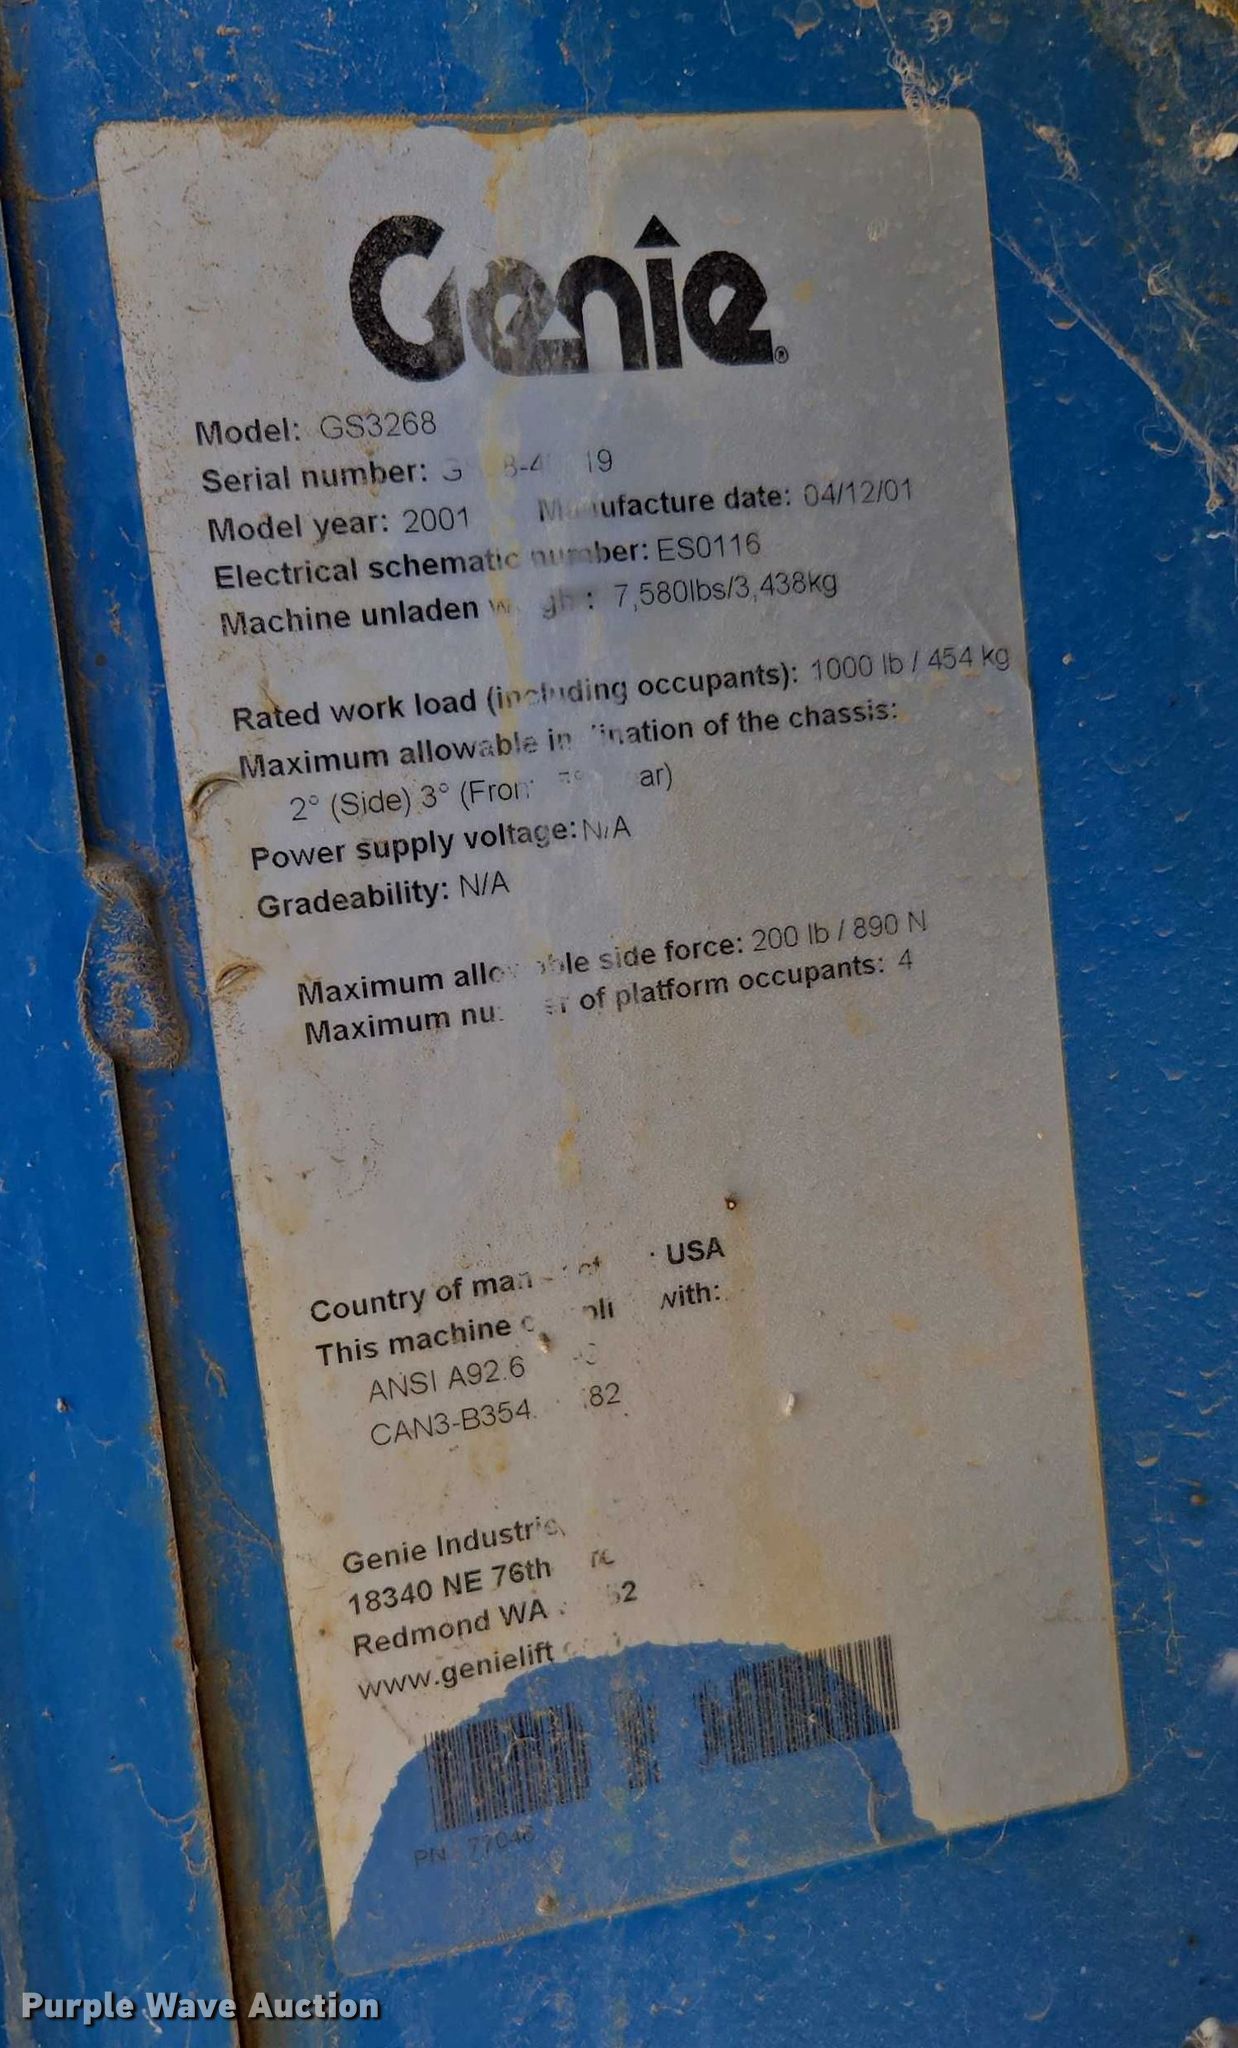 Genie®
Model: GS3268
Serial number:
Model year: 2001 Manufacture date: 04/12/01
Electrical schematic number: ES0116
Machine unladen weight: 7,580lbs/3,438kg
Rated work load (including occupants): 1000 lb / 454 kg
Maximum allowable inclination of the chassis:
2° (Side) 3° (Front
Power supply voltage: N/A
Gradeability: N/A
Maximum allowable side force: 200 lb / 890 N
Maximum number of platform occupants: 4
Country of manufacture: USA
This machine complies with:
ANSI A92.6
CAN3-B354. 82
Genie Industries
18340 NE 76th
Redmond WA
www.genielift
PN 77046
Purple Wave Auction